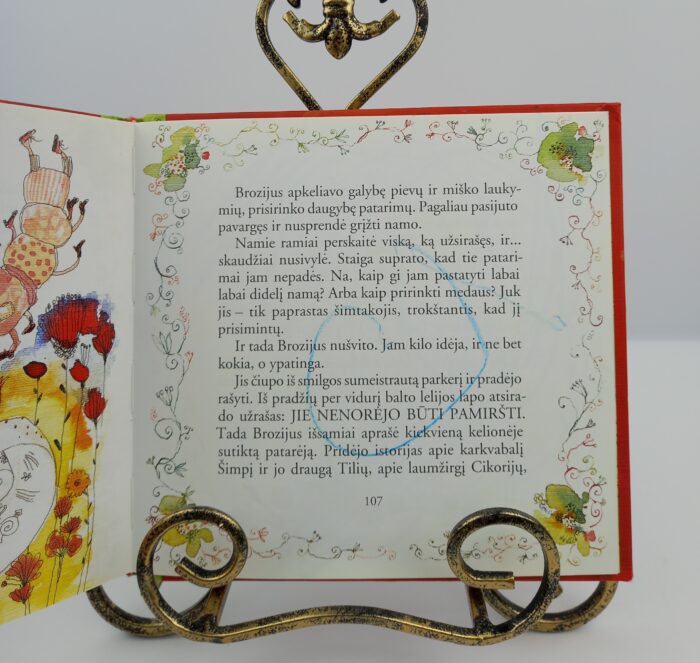 Brozijus apkeliavo galybę pievų ir miško lauky-
mių, prisirinko daugybę patarimų. Pagaliau pasijuto
pavargęs ir nusprendė grįžti namo.
Namie ramiai perskaitė viską, ką užsirašęs, ir...
skaudžiai nusivylė. Staiga suprato, kad tie patari-
mai jam nepadės. Na, kaip gi jam pastatyti labai
labai didelį namą? Arba kaip pririnkti medaus? Juk
jis – tik paprastas šimtakojis, trokštantis, kad jį
prisimintų.
Ir tada Brozijus nušvito. Jam kilo idėja, ir ne bet
kokia, o ypatinga.
Jis čiupo iš smilgos sumeistrautą parkerį ir pradėjo
rašyti. Iš pradžių per vidurį balto lelijos lapo atsira-
do užrašas: JIE NENORĖJO BŪTI PAMIRŠTI.
Tada Brozijus išsamiai aprašė kiekvieną kelionėje
sutiktą patarėją. Pridėjo istorijas apie karkvabalį
Šimpį ir jo draugą Tilių, apie laumžirgį Cikorijų,
107